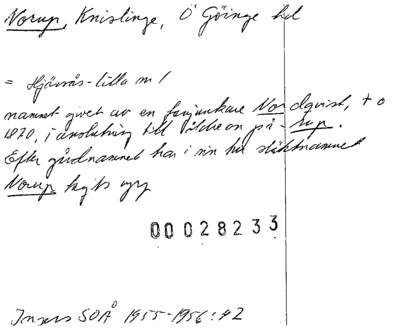 Norup, Knislinge, Ö Göinge hd
= Hjärsås-Lilla nr 1
namnet givet av en fanjunkare Nordqvist, † o
1870, i anslutning till äldre on på -rup.
Efter gårdnamnet har i sin tur släktnamnet
Norup tagits upp
00028233
Ingers SOÅ 1955-1956:42